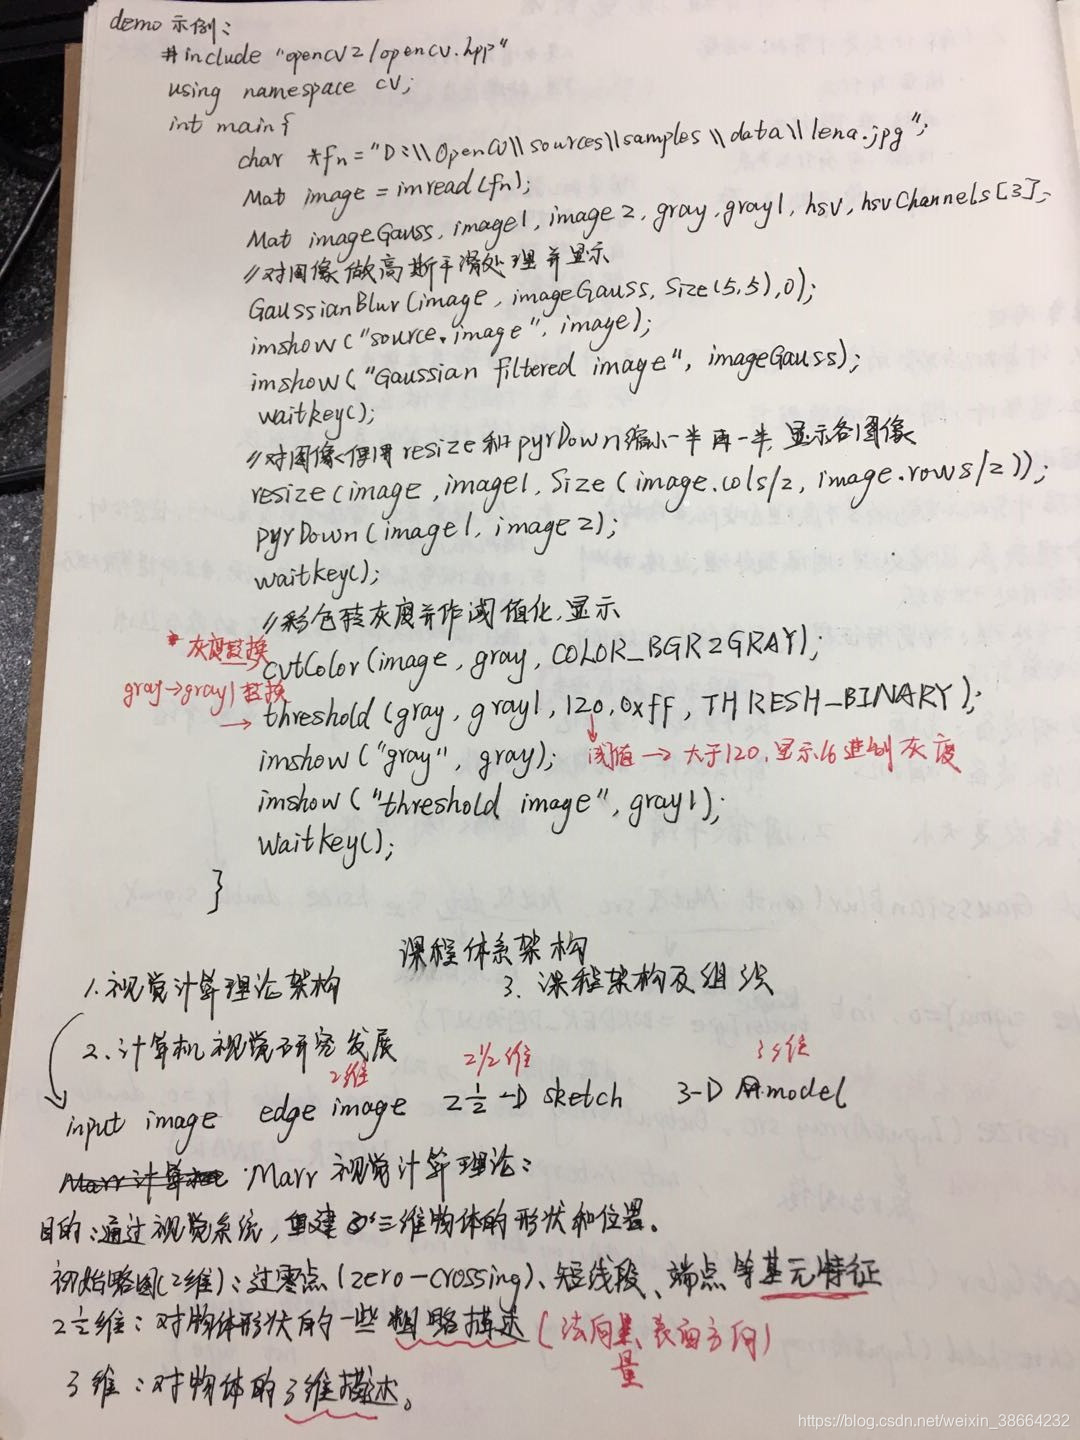 demo 示例：
#include "opencv2/opencv.hpp"
using namespace cv;
int main{
char *fn="D:\\OpenCV\\sources\\samples\\data\\lena.jpg";
Mat image = imread(fn);
Mat imageGauss, image1, image2, gray, gray1, hsv, hsvChannels[3];
//对图像做高斯平滑处理并显示
GaussianBlur(image, imageGauss, Size(5,5),0);
imshow("source.image", image);
imshow("Gaussian filtered image", imageGauss);
waitkey();
//对图像使用resize和pyrDown缩小一半再一半,显示各图像
resize(image, image1, Size(image.cols/2, image.rows/2));
pyrDown(image1, image2);
waitkey();
//彩色转灰度并作阈值化,显示
* 灰度转换
cvtColor(image, gray, COLOR_BGR2GRAY);
gray→gray1 转换
→ threshold(gray, gray1, 120, 0xff, THRESH_BINARY);
imshow("gray", gray);
阈值 → 大于120,显示16进制灰度
imshow("threshold image", gray1);
waitkey();
}
课程体系架构
1.视觉计算理论架构
3.课程架构及组织
2.计算机视觉研究发展
2维 2½维 3维
input image edge image 2½-D sketch 3-D model
Marr 视觉计算理论：
目的：通过视觉系统,重建三维物体的形状和位置。
初始略图(2维)：过零点(zero-crossing)、短线段、端点等基元特征
2½维：对物体形状的一些粗略描述(法向量、表面方向)
3维：对物体的3维描述。
https://blog.csdn.net/weixin_38664232